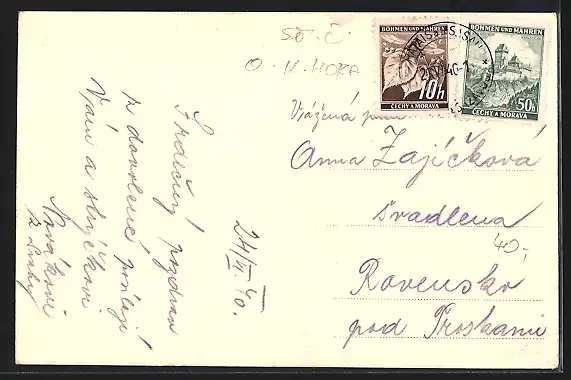 SŠ.Č
O. N. HORA
BÖHMEN UND MÄHREN
10h
ČECHY A MORAVA
BÖHMEN UND MÄHREN
50h
ČECHY A MORAVA
40-1
Srdečný pozdrav
z dovolené posílají
Vám a
Novákovi
z Prahy
24/VI 40.
Vážená paní
Anna Zajíčková
švadlena
40,-
Rovensko
pod Troskami